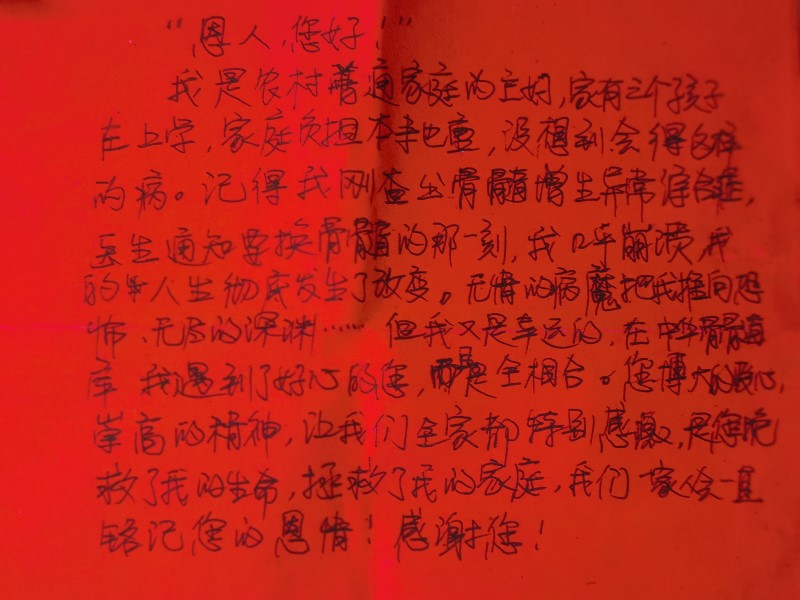 “恩人,您好!”
我是农村普通家庭的主妇,家有三个孩子
在上学,家庭负担本来就重,没想到会得这样
的病。记得我刚查出骨髓增生异常综合症,
医生通知要换骨髓的那一刻,我几乎崩溃,我
的人生彻底发生了改变。无情的病魔把我推向恐
怖、无尽的深渊…… 但我又是幸运的,在中华骨髓
库 我遇到了好心的您,而且是全相合。您博大的爱心,
崇高的精神,让我们全家都特别感激,是您挽
救了我的生命,拯救了我的家庭,我们家人会一直
铭记您的恩情!感谢您!